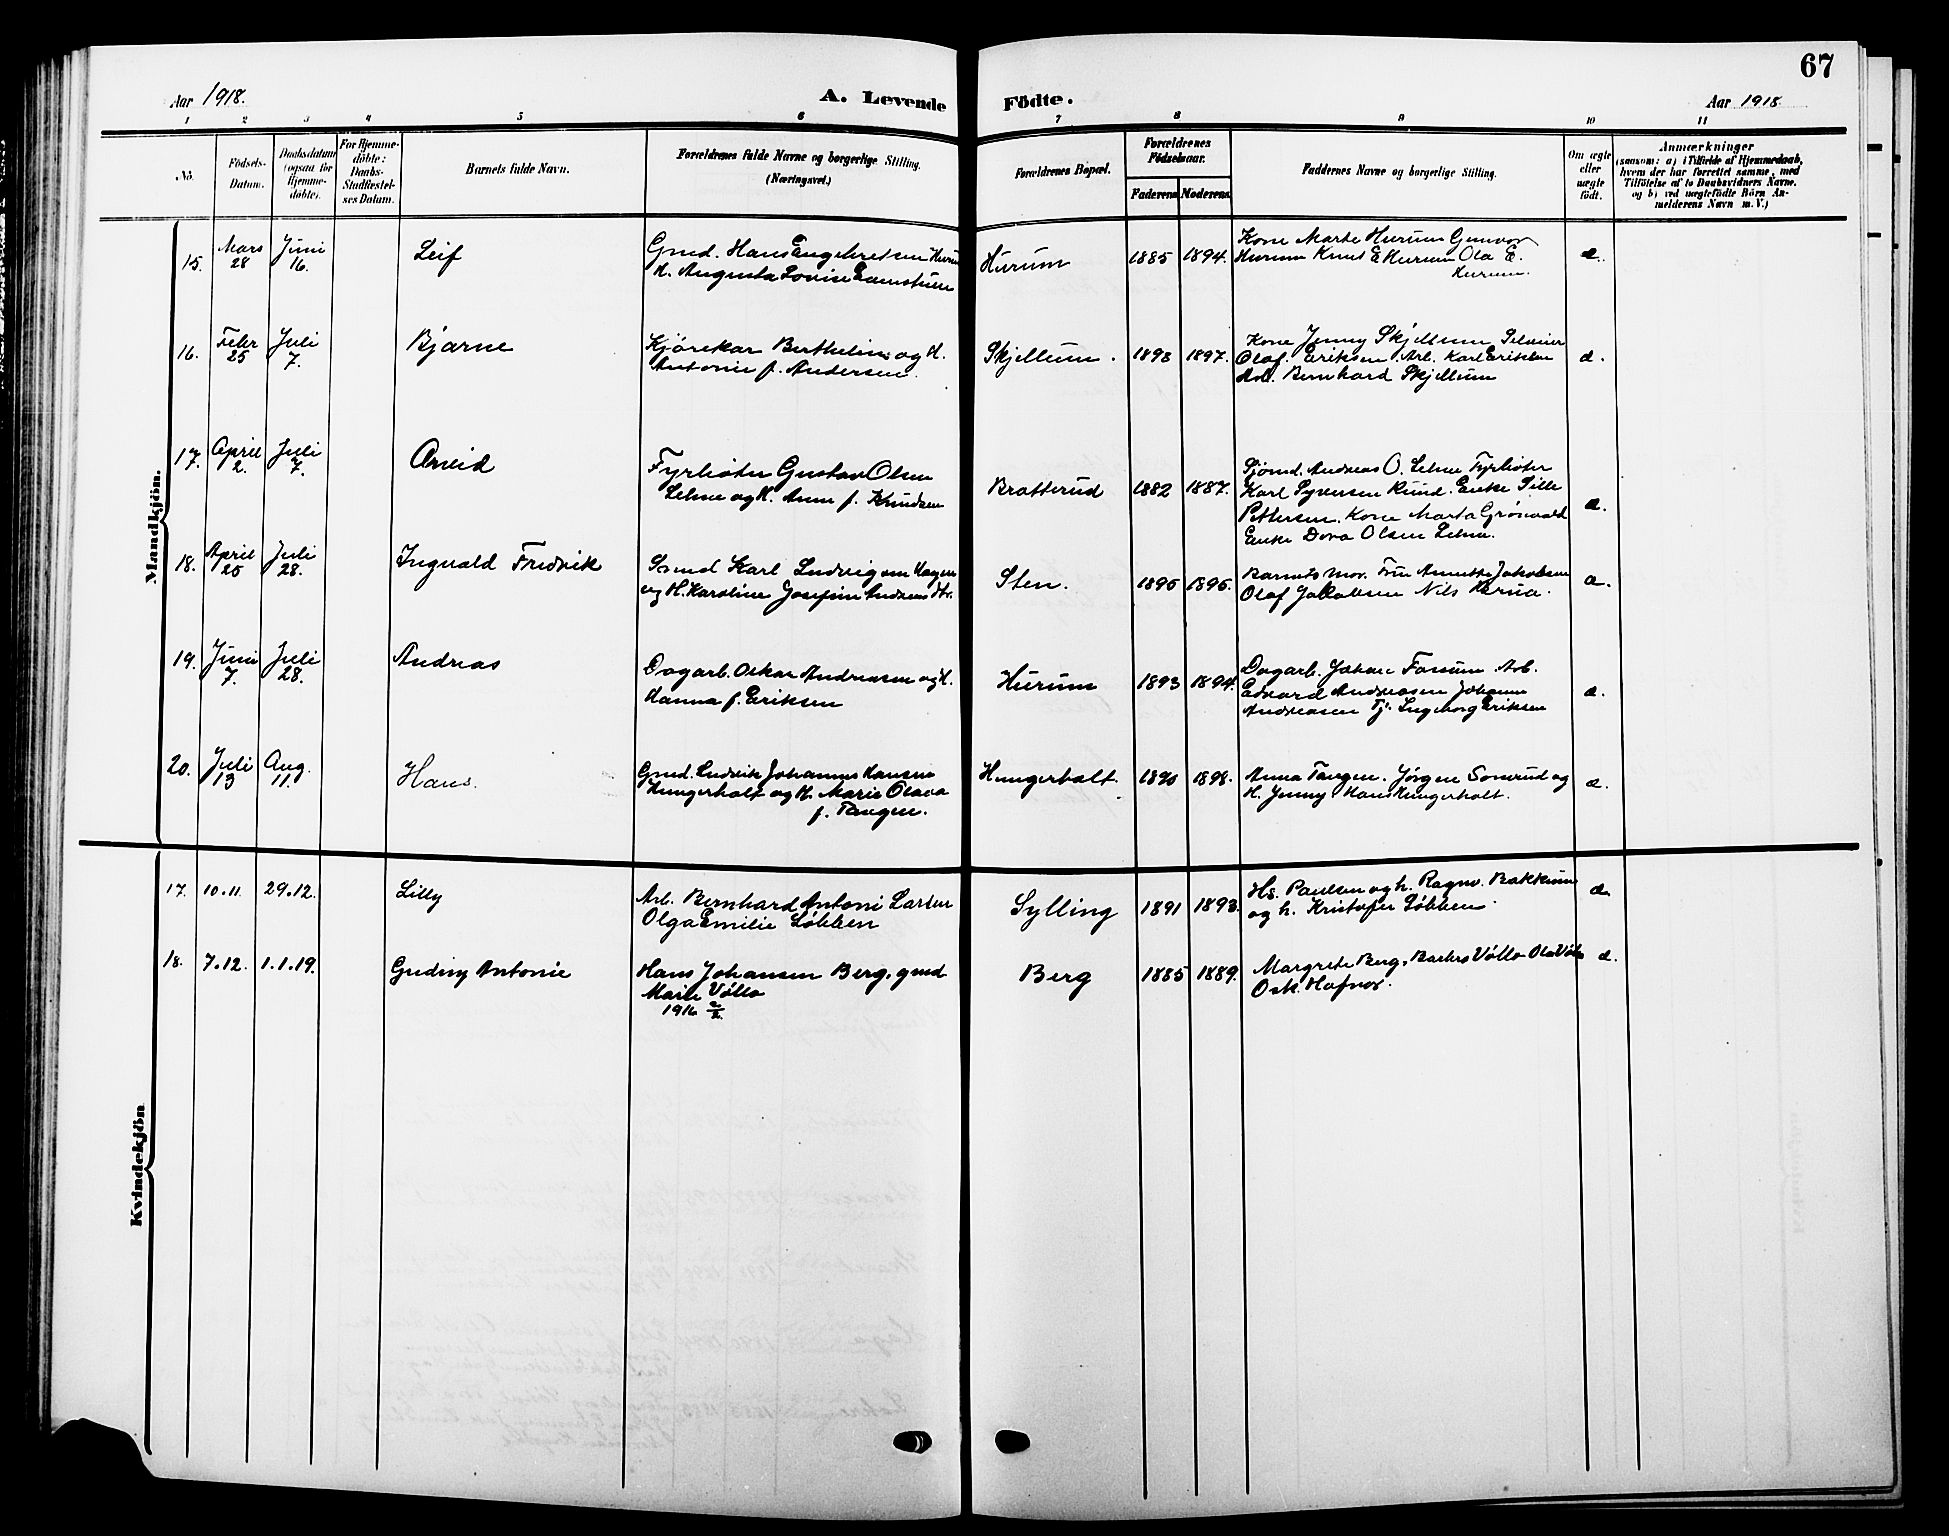 67
Aar 1918.
A. Levende Födte.
Aar 1918
1 2 3 4 5 6 7 8 9 10 11
No.
Födsels-Datum.
Daabsdatum (ogsaa for Hjemmedöbte).
For Hjemmedöbte: Daabs-Stadfæstelses Datum.
Barnets fulde Navn.
Forældrenes fulde Navne og borgerlige Stilling.
(Næringsvei.)
Forældrenes Bopæl.
Forældrenes Födselsaar.
Faderens Moderens
Faddernes Navne og borgerlige Stilling.
Om ægte eller uægte födt.
Anmærkninger
(saasom: a) i Tilfælde af Hjemmedaab, hvem der har forrettet samme, med Tilföielse af to Daabsvidners Navne, og b) ved uægtefödte Börn Anmelderens Navn m. V.)
Mandkjön.
15. Mars 28 Juni 16. Leif
Gmd. Hans Engebretsen Hurum
H. Augusta Lovise
Hurum 1885 1894.
Kone Marte Hurum Gunvor
Hurum Knut E Hurum Ola E.
Hurum.
16. Febr 25 Juli 7. Bjarne
Kjörekar Berthelin og H.
Antonie f. Andersen.
Skjellum. 1893 1897.
Kone Jenny Skjellum
Olaf Eriksen. Arb. Karl Eriksen
Arb. Bernhard Skjellum
17. April 2. Juli 7. Arvid
Fyrböter Gustav Olsen
Selme og H. Anna f. Knudsen
Bratterud 1882 1887.
Sjömd. Andreas O. Selme Fyrböter
Karl Syversen Rund. Enke
Pettersen. Kone Marta Grönvold
Enke Dora Olsen Selme.
18. April 25 Juli 28. Ingvald Fredrik
Karl Ludvigsen Hagen
og H. Karoline Josefine Andreasdtr.
Sten. 1895 1895.
Barnets Mor. Fru Annette Jakobsen
Olaf Jakobsen Nils
19. Juni 7. Juli 28. Andreas
Dagarb. Oskar Andreasen og H.
Hanna f. Eriksen
Hurum 1893 1894
Dagarb. Johan Fossum Arb.
Edvard Andreasen Johanne
Andreasen Tj. Ingeborg Eriksen
20. Juli 13 Aug. 11. Hans.
Gmd. Ludvik Johannes Hansen
Hungerholt og H. Marie Olava
f. Tangen.
Hungerholt. 1890 1898.
Anna Tangen. Jörgen Sönerud og
H. Jenny Hans Hungerholt.
Kvindekjön
17. 10.11. 29.12. Lilly
Arb. Bernhard Antoni Larsen
Olga Emilie Löbben
Sylling 1891 1893.
Hs. Paulsen og h. Ragnv. Bakkerud
og h. Kristofer Löbben.
18. 7.12. 1.1.19. Gudny Antonie
Hans Johansen Berg, gmd
Marie Völlo
1916
Berg 1885 1889.
Margrete Berg, Völlo Ola Völlo
Osk. Hafnor.